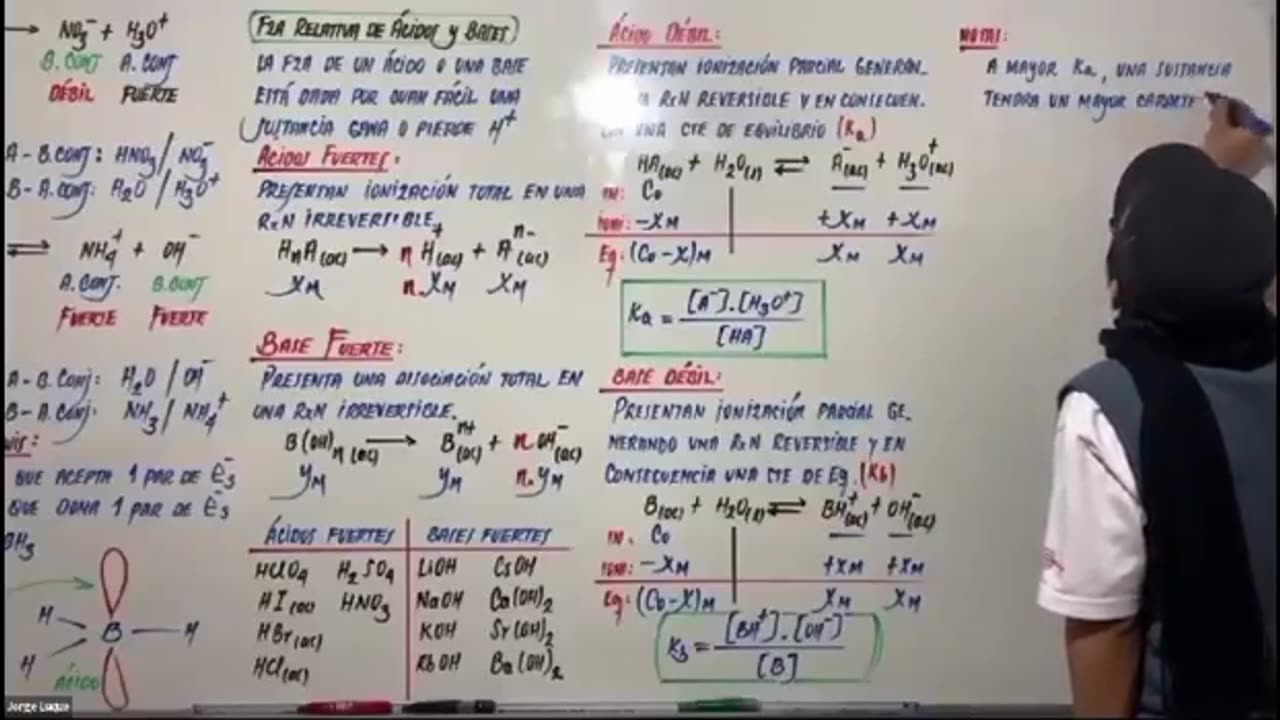 → NO₃⁻ + H₃O⁺
B. CONJ A. CONJ
DÉBIL FUERTE
A - B. CONJ : HNO₃ / NO₃⁻
B - A. CONJ : H₂O / H₃O⁺
⇌ NH₄⁺ + OH⁻
A. CONJ. B. CONJ
FUERTE FUERTE
A - B. CONJ : H₂O / OH⁻
B - A. CONJ : NH₃ / NH₄⁺
QUE ACEPTA 1 PAR DE e⁻s
QUE DONA 1 PAR DE e⁻s
BH₃
H
B — H
H
ÁCIDO
FZA RELATIVA DE ÁCIDOS y BASES
LA FZA DE UN ÁCIDO O UNA BASE
ESTÁ DADA POR CUAN FÁCIL UNA
SUSTANCIA GANA O PIERDE H⁺
ÁCIDOS FUERTES:
PRESENTAN IONIZACIÓN TOTAL EN UNA
RxN IRREVERSIBLE.
HnA(ac) → n H⁺(ac) + Aⁿ⁻(ac)
XM n.XM XM
BASE FUERTE:
PRESENTA UNA DISOCIACIÓN TOTAL EN
UNA RxN IRREVERSIBLE.
B(OH)n (ac) → Bⁿ⁺(ac) + n OH⁻(ac)
yM yM n.yM
ÁCIDOS FUERTES BASES FUERTES
HClO₄ H₂SO₄ LiOH CsOH
HI(ac) HNO₃ NaOH Ca(OH)₂
HBr(ac) KOH Sr(OH)₂
HCl(ac) RbOH Ba(OH)₂
ÁCIDO DÉBIL:
PRESENTAN IONIZACIÓN PARCIAL GENERAN-
RxN REVERSIBLE Y EN CONSECUEN-
UNA CTE DE EQUILIBRIO (Ka)
HA(ac) + H₂O(l) ⇌ A⁻(ac) + H₃O⁺(ac)
IN: Co
IONI: -XM +XM +XM
Eq: (Co-X)M XM XM
Ka = [A⁻].[H₃O⁺]
[HA]
BASE DÉBIL:
PRESENTAN IONIZACIÓN PARCIAL GE-
NERANDO UNA RxN REVERSIBLE Y EN
CONSECUENCIA UNA CTE DE Eq. (Kb)
B(ac) + H₂O(l) ⇌ BH⁺(ac) + OH⁻(ac)
IN: Co
IONI: -XM +XM +XM
Eq: (Co-X)M XM XM
Kb = [BH⁺].[OH⁻]
[B]
NOTAS:
A MAYOR Ka, UNA SUSTANCIA
TENDRA UN MAYOR CARÁCTE
Jorge Luque